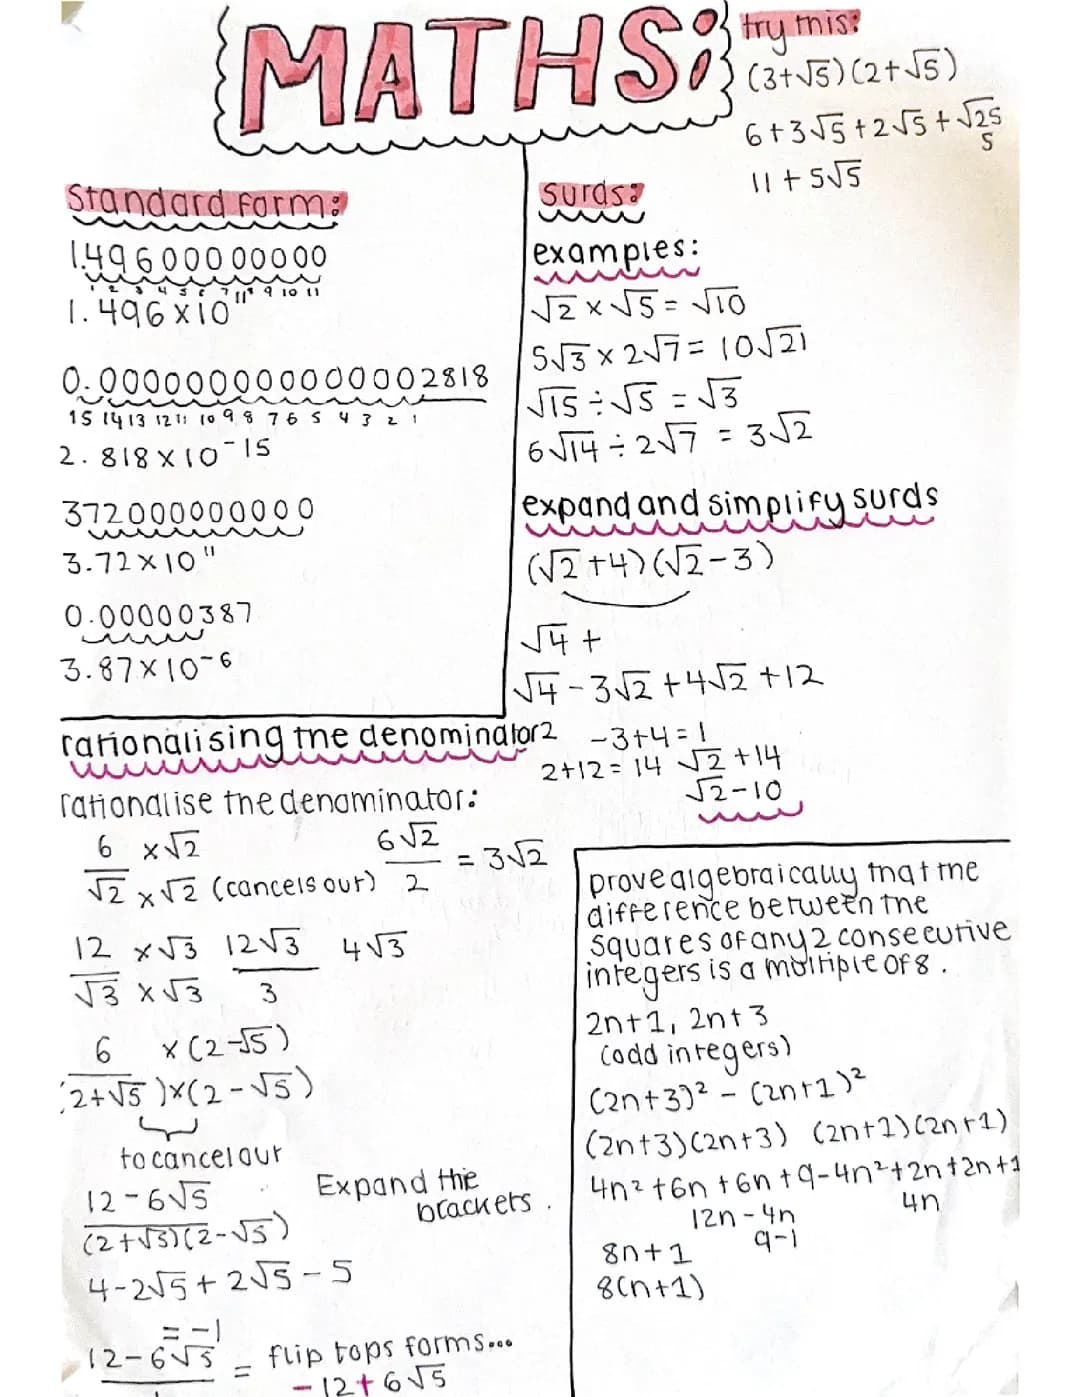 MATHS:
try this:
(3+√5)(2+√5)
6+3√5+2√5+√25
5
11+5√5
Standard form:
1.49600000000
1 2 3 4 5 6 7 8 9 10 11
1.496×10¹¹
0.000000000000002818
15 14 13 12 11 10 9 8 7 6 5 4 3 2 1
2.818×10⁻¹⁵
372000000000
3.72×10¹¹
0.00000387
3.87×10⁻⁶
surds:
examples:
√2 × √5 = √10
5√3 × 2√7 = 10√21
√15 ÷ √5 = √3
6√14 ÷ 2√7 = 3√2
expand and simplify surds
(√2+4)(√2-3)
√4 +
√4 - 3√2 + 4√2 + 12
2 -3+4=1
2+12=14 √2+14
√2-10
rationalising the denominator
rationalise the denominator:
6 ×√2 6√2
√2 ×√2 (cancels out) 2 = 3√2
12 ×√3 12√3 4√3
√3 ×√3 3
6 ×(2-√5)
(2+√5)×(2-√5)
to cancel out
12-6√5
(2+√5)(2-√5)
Expand the
brackets.
4-2√5+2√5-5
= -1
12-6√5 = flip tops forms...
-12+6√5
prove algebraically that the
difference between the
squares of any 2 consecutive
integers is a multiple of 8.
2n+1, 2n+3
(odd integers)
(2n+3)² - (2n+1)²
(2n+3)(2n+3) (2n+1)(2n+1)
4n²+6n+6n+9-4n²+2n+2n+1
4n
12n-4n
9-1
8n+1
8(n+1)